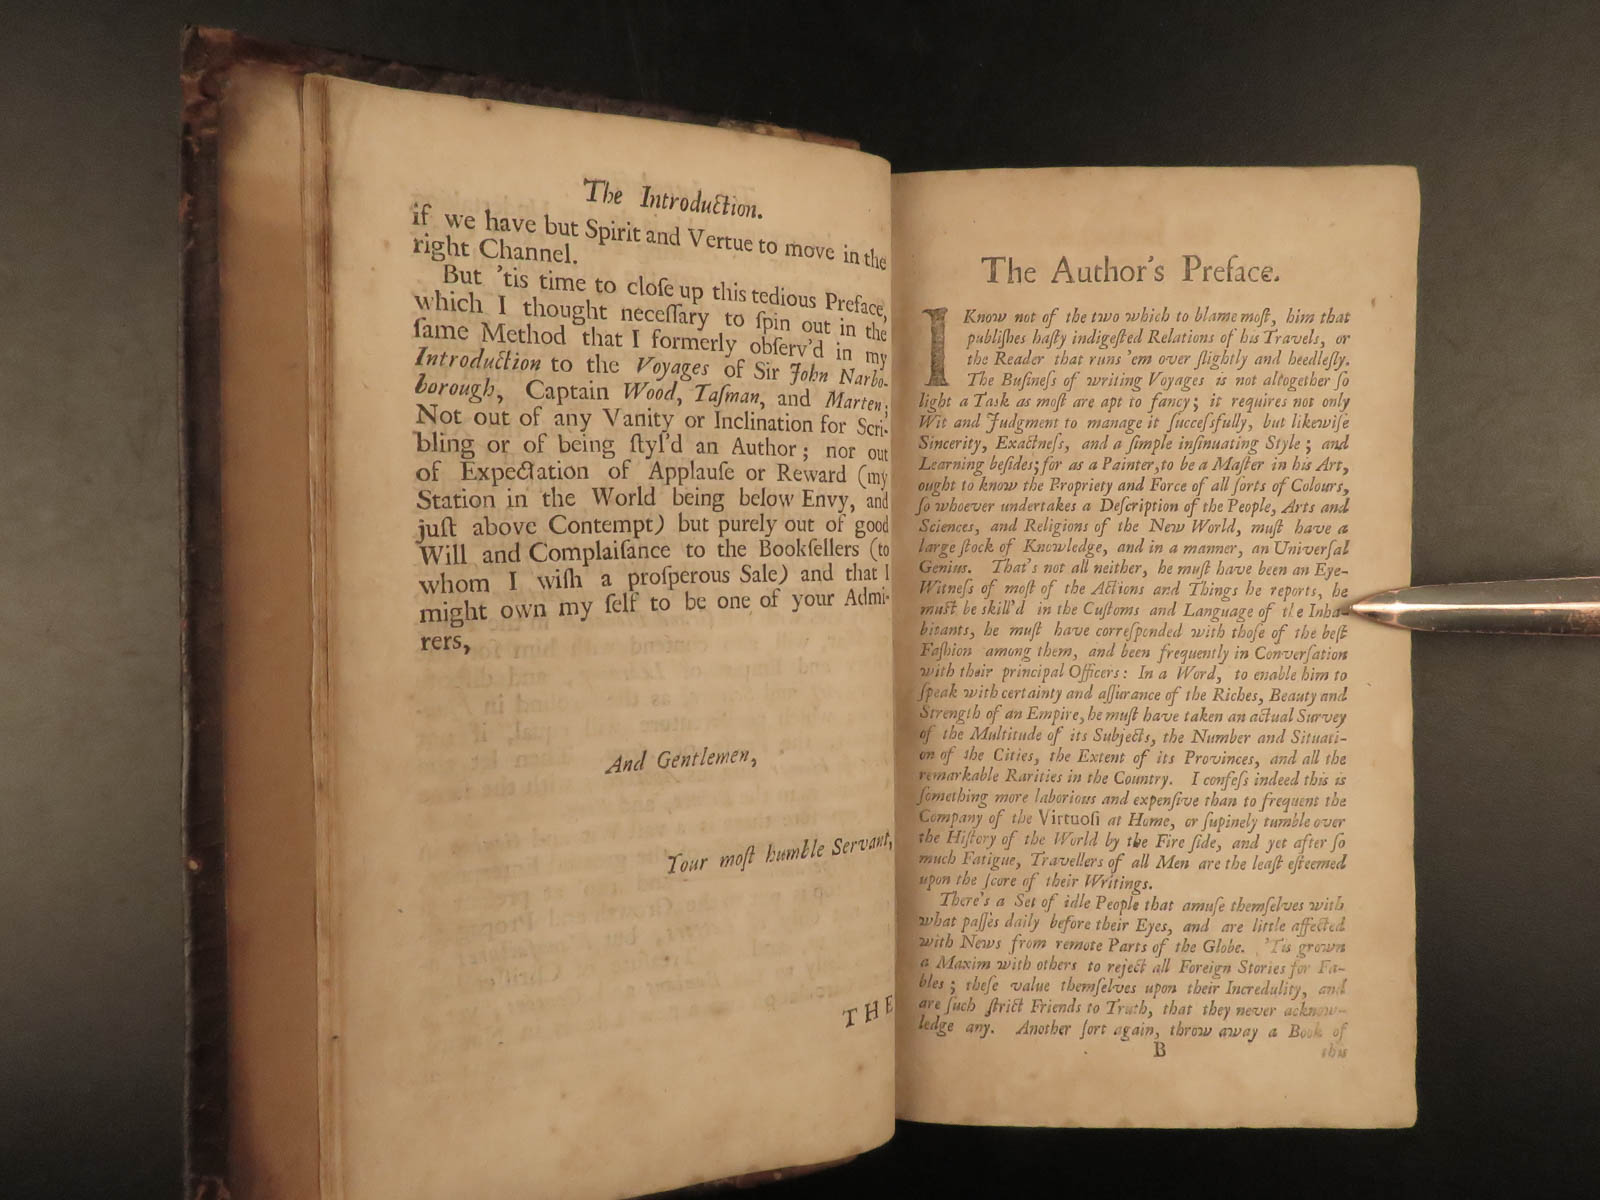 The Introduction.
if we have but Spirit and Vertue to move in the
right Channel.
But 'tis time to cloſe up this tedious Preface,
which I thought neceſſary to ſpin out in the
ſame Method that I formerly obſerv'd in my
Introduction to the Voyages of Sir John Narbo-
borough, Captain Wood, Taſman, and Marten;
Not out of any Vanity or Inclination for Scri-
bling or of being ſtyl'd an Author; nor out
of Expectation of Applauſe or Reward (my
Station in the World being below Envy, and
juſt above Contempt) but purely out of good
Will and Complaiſance to the Bookſellers (to
whom I wiſh a proſperous Sale) and that I
might own my ſelf to be one of your Admi-
rers,
And Gentlemen,
Your moſt humble Servant,
THE
The Author's Preface.
I Know not of the two which to blame moſt, him that
publiſhes haſty indigeſted Relations of his Travels, or
the Reader that runs 'em over ſlightly and heedleſly.
The Buſineſs of writing Voyages is not altogether ſo
light a Task as moſt are apt to fancy; it requires not only
Wit and Judgment to manage it ſucceſsfully, but likewiſe
Sincerity, Exactneſs, and a ſimple inſinuating Style; and
Learning beſides; for as a Painter, to be a Maſter in his Art,
ought to know the Propriety and Force of all ſorts of Colours,
ſo whoever undertakes a Deſcription of the People, Arts and
Sciences, and Religions of the New World, muſt have a
large ſtock of Knowledge, and in a manner, an Univerſal
Genius. That's not all neither, he muſt have been an Eye-
Witneſs of moſt of the Actions and Things he reports, he
muſt be skill'd in the Cuſtoms and Language of the Inha-
bitants, he muſt have correſponded with thoſe of the beſt
Faſhion among them, and been frequently in Converſation
with their principal Officers: In a Word, to enable him to
ſpeak with certainty and aſſurance of the Riches, Beauty and
Strength of an Empire, he muſt have taken an actual Survey
of the Multitude of its Subjects, the Number and Situati-
on of the Cities, the Extent of its Provinces, and all the
remarkable Rarities in the Country. I confeſs indeed this is
ſomething more laborious and expenſive than to frequent the
Company of the Virtuoſi at Home, or ſupinely tumble over
the Hiſtory of the World by the Fire ſide, and yet after ſo
much Fatigue, Travellers of all Men are the leaſt eſteemed
upon the ſcore of their Writings.
There's a Set of idle People that amuſe themſelves with
what paſſes daily before their Eyes, and are little affected
with News from remote Parts of the Globe. 'Tis grown
a Maxim with others to reject all Foreign Stories for Fa-
bles; theſe value themſelves upon their Incredulity, and
are ſuch ſtrict Friends to Truth, that they never acknow-
ledge any. Another ſort again, throw away a Book of
B
this